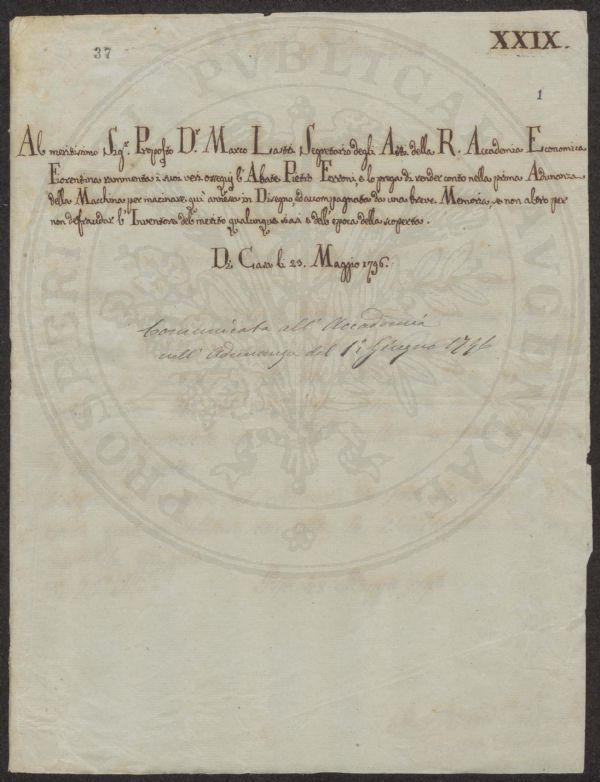 37
XXIX.
1
Al meritissimo Sig.r Proposto D.r Marco Lastri Segretario degli Atti della R. Accademia Economica
Fiorentina rammenta i suoi veri ossequj l'Abate Pietro Ferroni, e lo prega di render conto nella prima Adunanza
della Macchina per macinare, quì annessa in Disegno, ed accompagnata da una breve Memoria, se non altro per
non defraudar l'Inventore del merito qualunque siasi e dell'epoca della scoperta.
Di Casa li 23. Maggio 1796.
Comunicata all'Accademia
nell'Adunanza del 1.° Giugno 1796
PROSPERITATI PVBLICAE AVGENDAE